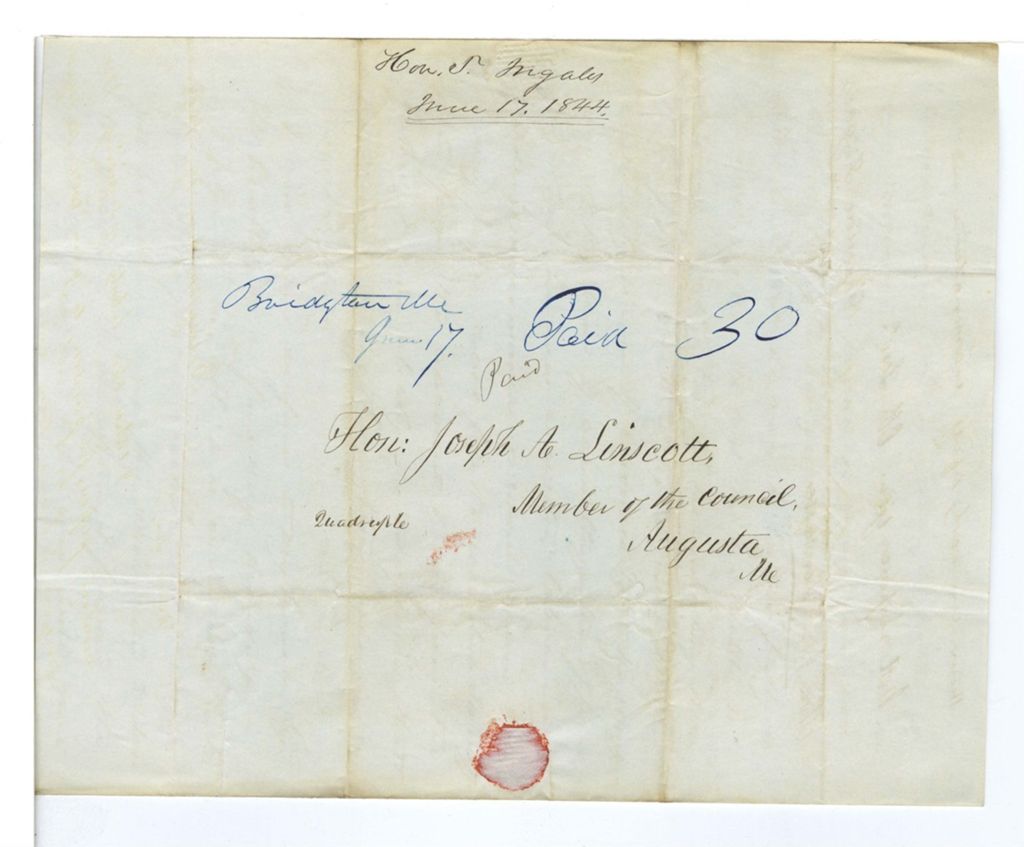 Hon. S. Ingalls
June 17. 1844.
Bridgton Me
June 17.
Paid 30
Paid
Hon: Joseph A. Linscott,
Member of the Council,
Quadruple
Augusta
Me